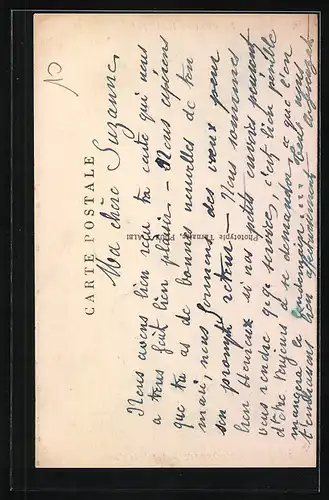 CARTE POSTALE
Phototypie Tarnaise, Albi
Ma chère Suzanne,
Nous avons bien reçu ta carte qui nous
a tous fait bien plaisir. - Nous espérons
que tu as de bonnes nouvelles de ton
mari, nous formons des vœux pour
son prompt retour - Nous sommes
bien heureux si nos petits envois peuvent
vous rendre qq. service, c'est bien pénible
d'être toujours à se demander ce que l'on
mangera le lendemain ....
t'embrassons bien affectueusement